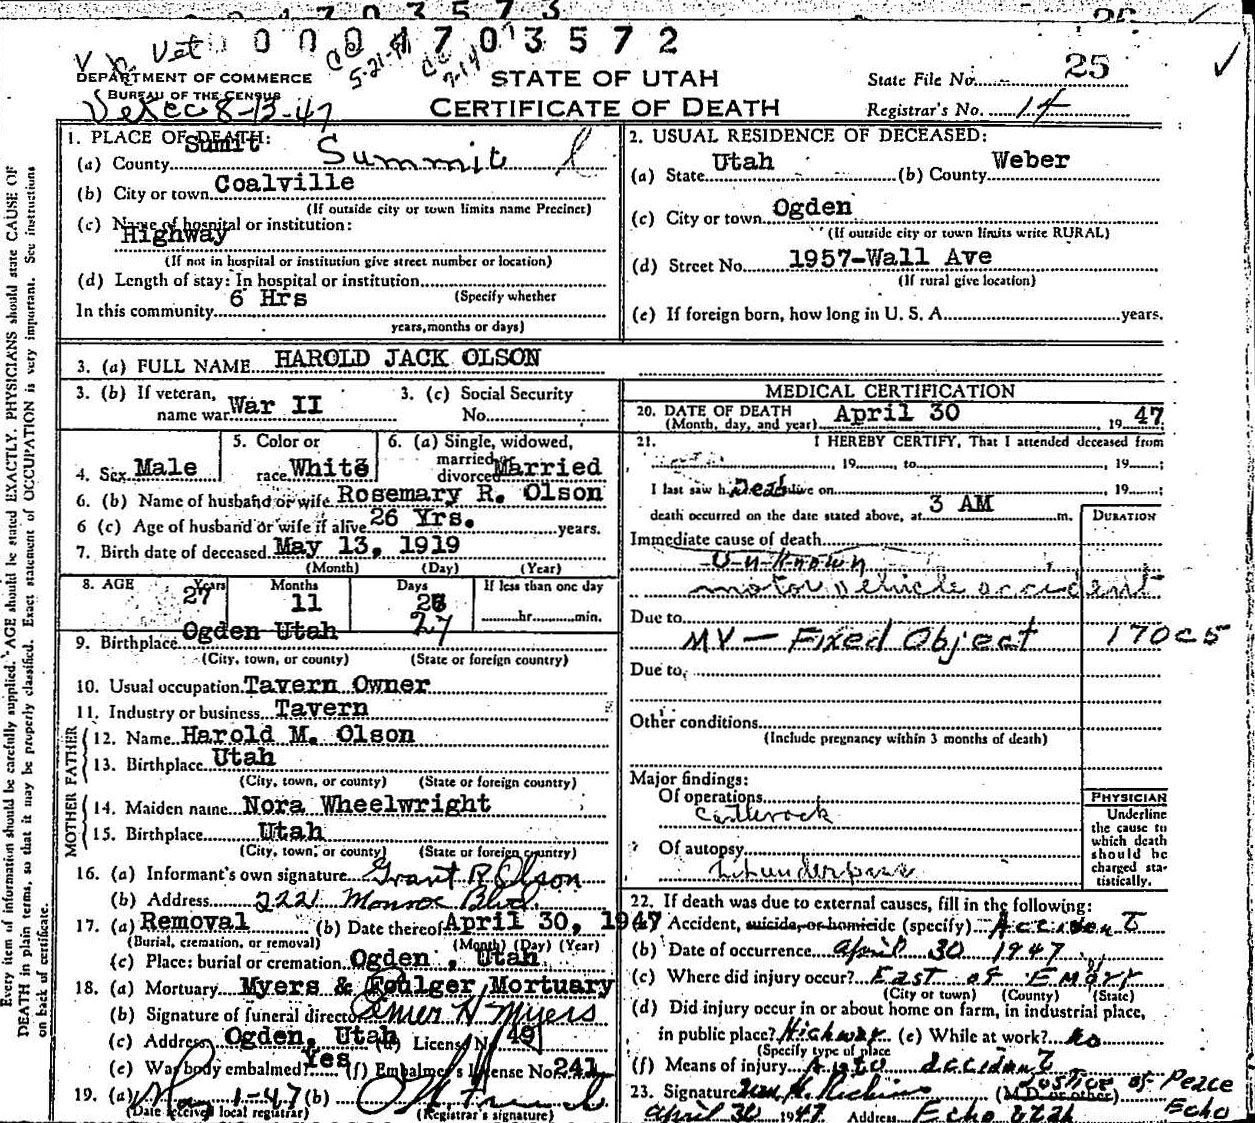 V Vet 0 0 0 4 7 0 3 5 7 2
DEPARTMENT OF COMMERCE
BUREAU OF THE CENSUS
8-13-47
STATE OF UTAH
CERTIFICATE OF DEATH
State File No. 25
Registrar's No. 14
Every item of information should be carefully supplied. AGE should be stated EXACTLY. PHYSICIANS should state CAUSE OF
DEATH in plain terms, so that it may be properly classified. Exact statement of OCCUPATION is very important. See instructions
on back of certificate.
1. PLACE OF DEATH:
(a) County Sumit Summit
(b) City or town Coalville
(If outside city or town limits name Precinct)
(c) Name of hospital or institution:
Highway
(If not in hospital or institution give street number or location)
(d) Length of stay: In hospital or institution
6 Hrs (Specify whether
In this community
years, months or days)
2. USUAL RESIDENCE OF DECEASED:
(a) State Utah (b) County Weber
(c) City or town Ogden
(If outside city or town limits write RURAL)
(d) Street No. 1957-Wall Ave
(If rural give location)
(e) If foreign born, how long in U. S. A. years.
3. (a) FULL NAME HAROLD JACK OLSON
3. (b) If veteran,
name war War II
3. (c) Social Security
No.
4. Sex Male
5. Color or
race White
6. (a) Single, widowed,
married or
divorced Married
6. (b) Name of husband or wife Rosemary R. Olson
6 (c) Age of husband or wife if alive 26 Yrs. years.
7. Birth date of deceased May 13, 1919
(Month) (Day) (Year)
8. AGE Years Months Days If less than one day
27 11 27 hr. min.
9. Birthplace Ogden Utah
(City, town, or county) (State or foreign country)
10. Usual occupation Tavern Owner
11. Industry or business Tavern
FATHER
12. Name Harold M. Olson
13. Birthplace Utah
(City, town, or county) (State or foreign country)
MOTHER
14. Maiden name Nora Wheelwright
15. Birthplace Utah
(City, town, or county) (State or foreign country)
16. (a) Informant's own signature Grant R Olson
(b) Address 2221 Monroe Blvd.
17. (a) Removal (b) Date thereof April 30, 1947
(Burial, cremation, or removal) (Month) (Day) (Year)
(c) Place: burial or cremation Ogden, Utah
18. (a) Mortuary Myers & Foulger Mortuary
(b) Signature of funeral director Elmer H Myers
(c) Address Ogden, Utah (d) License No. 49
(e) Was body embalmed? Yes (f) Embalmer's License No. 241
19. (a) May 1-47 (b)
(Date received local registrar) (Registrar's signature)
MEDICAL CERTIFICATION
20. DATE OF DEATH April 30 1947
(Month, day, and year)
21. I HEREBY CERTIFY, That I attended deceased from
, 19 , to , 19 ;
I last saw h Dead alive on , 19 ;
death occurred on the date stated above, at 3 AM m.
DURATION
Immediate cause of death
Unknown
motor vehicle accident
Due to
MV - Fixed Object 170C5
Due to
Other conditions
(Include pregnancy within 3 months of death)
Major findings:
Of operations
Castlerock
Of autopsy
underpass
PHYSICIAN
Underline
the cause to
which death
should be
charged statistically.
22. If death was due to external causes, fill in the following:
(a) Accident, suicide, or homicide (specify) Accident
(b) Date of occurrence April 30 1947
(c) Where did injury occur? East of Emory
(City or town) (County) (State)
(d) Did injury occur in or about home on farm, in industrial place,
in public place? Highway (e) While at work? No
(Specify type of place
(f) Means of injury Auto accident
23. Signature (M.D. or other) Justice of Peace
Echo
April 30 1947 Address Echo Utah